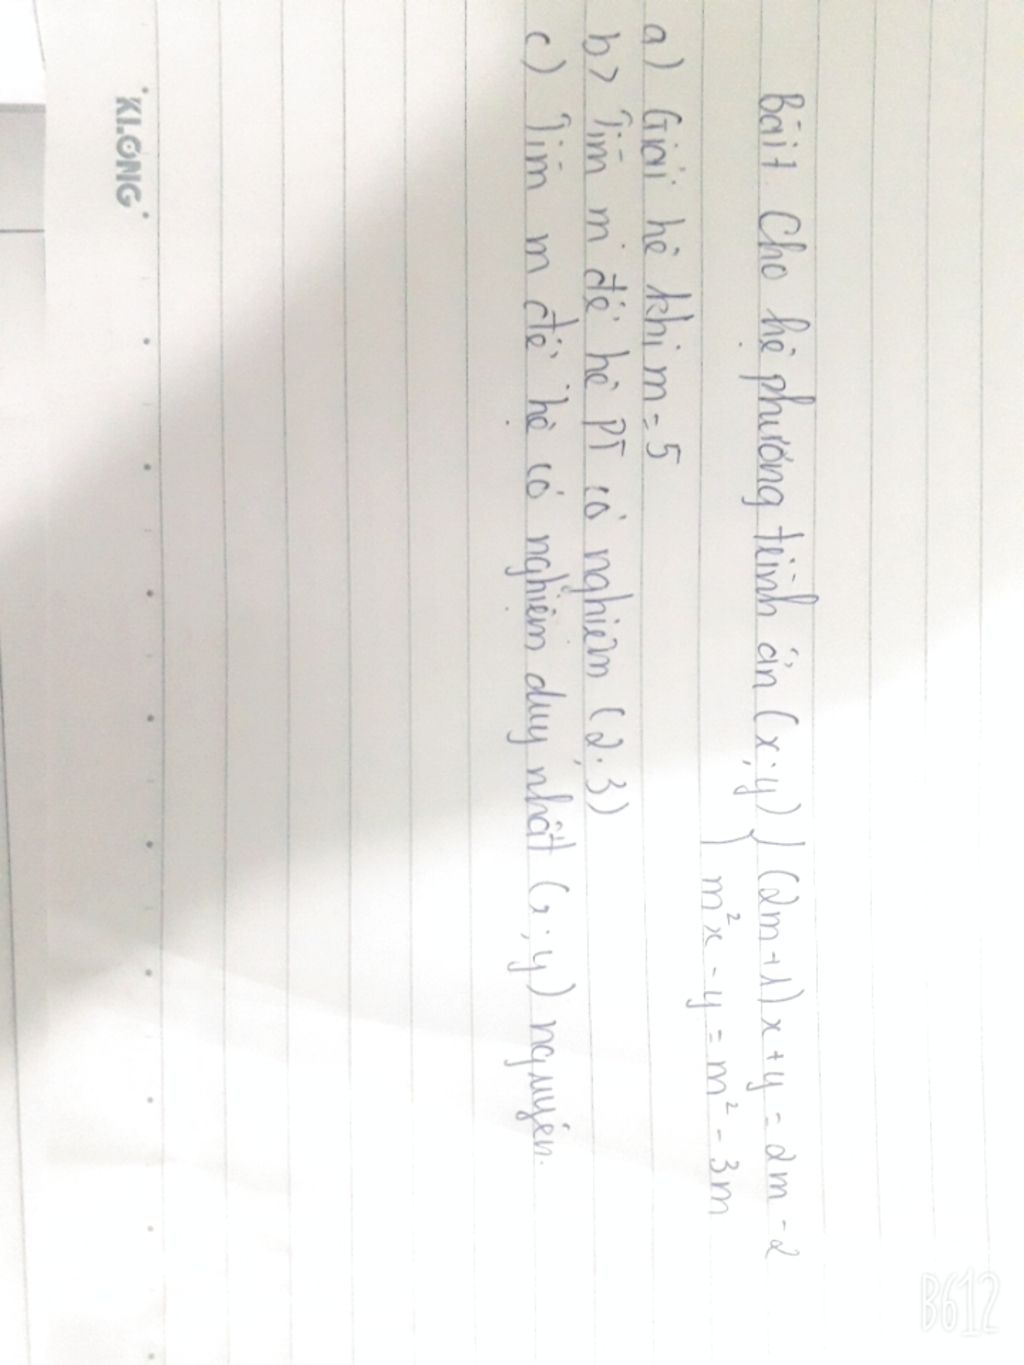 Bài 1. Cho hệ phương trình ẩn (x;y) { (2m+1)x+y=2m-2
m²x-y=m²-3m
a) Giải hệ khi m=5
b) Tìm m để hệ PT có nghiệm (2;3)
c) Tìm m để hệ có nghiệm duy nhất (x;y) nguyên.
KLONG
B612